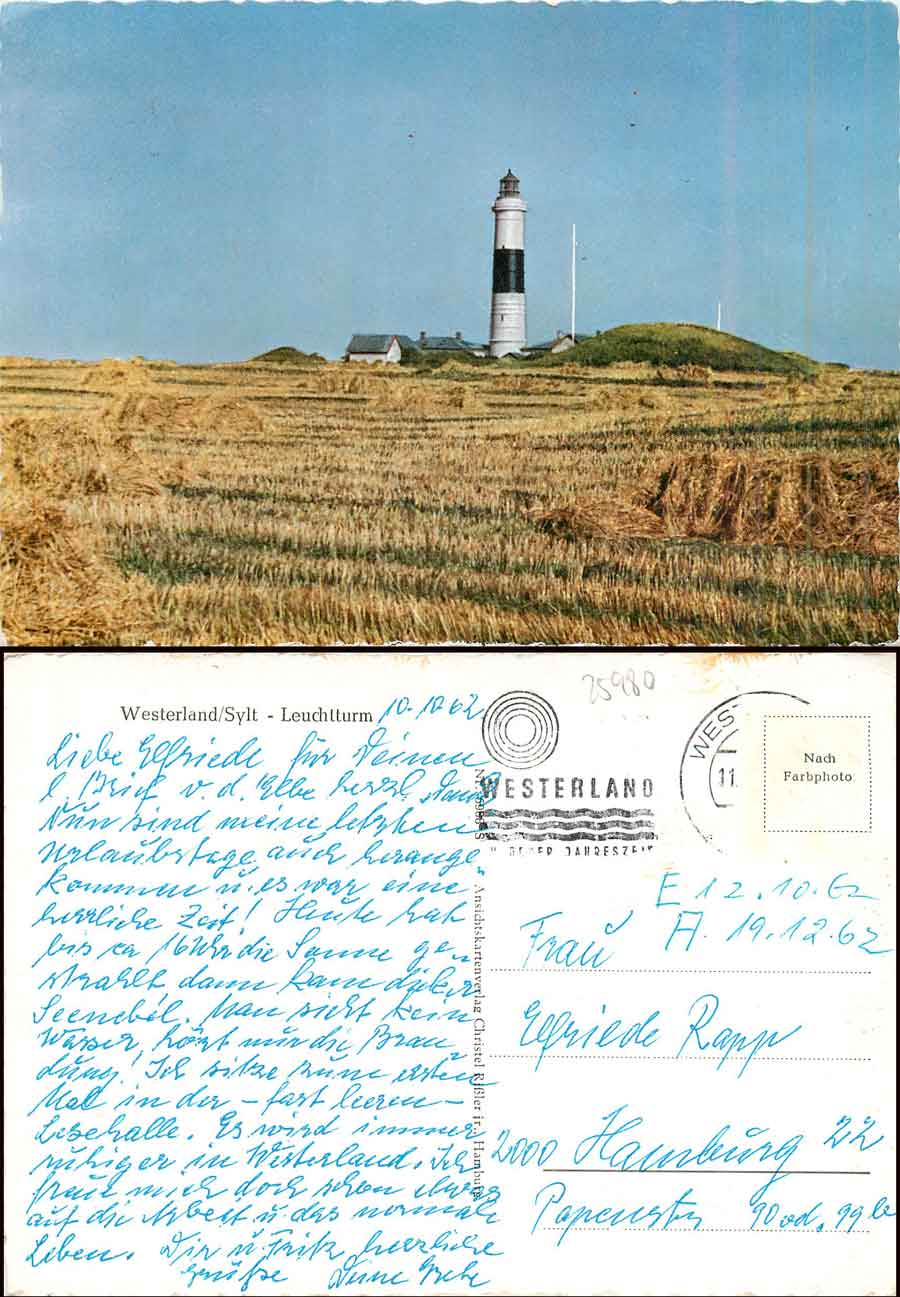 Westerland/Sylt - Leuchtturm
10.10.62
Liebe Elfriede für Deinen
l. Brief v. d. Elbe herzl. Dank
Nun sind meine letzten
Urlaubstage auch herange
kommen u. es war eine
herrliche Zeit! Heute hat
bis ca 16 Uhr die Sonne ge-
strahlt dann kam dicker
Seenebel. Man sieht kein
Wasser, hört nur die Bran
dung! Ich sitze zum ersten
Mal in der - fast leeren -
Lesehalle. Es wird immer
ruhiger in Westerland. Ich
freue mich doch schon etwas
auf die Arbeit u. das normale
Leben. Dir u. Fritz herzliche
Grüße Deine
Ansichtskartenverlag Christel Rißler jr., Hamburg
25980
WESTERLAND
ZU JEDER JAHRESZEIT
WEST
11.
Nach
Farbphoto
E 12.10.62
A. 19.12.62
Frau
Elfriede Rapp
2000 Hamburg 22
Papenstr 90 od. 99b